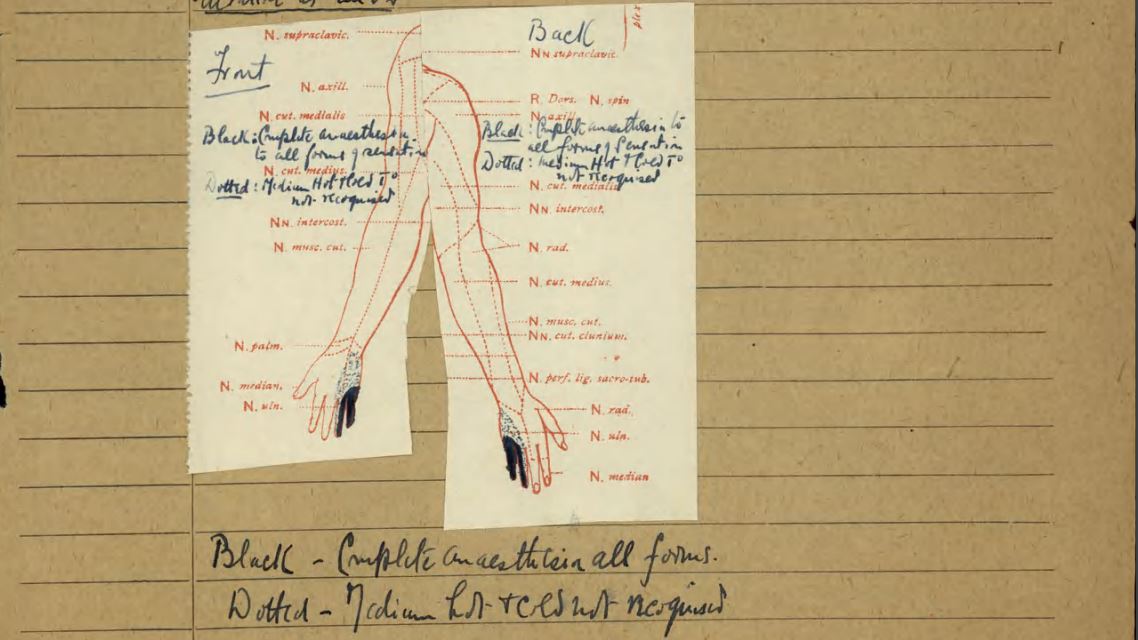 Front
N. supraclavic.
N. axill.
N. cut. medialis
Black: Complete anaesthesia
to all forms of sensation
N. cut. medius.
Dotted: Medium Hot & Cold T°
not recognised
NN. intercost.
N. musc. cut.
N. palm.
N. median.
N. uln.
Back
plex
NN supraclavic.
R. Dors. N. spin
N. axill
Black: Complete anaesthesia to
all forms of Sensation
Dotted: Medium Hot & Cold T°
not recognised
N. cut. medialis
NN. intercost.
N. rad.
N. cut. medius.
N. musc. cut.
NN. cut. clunium.
N. perf. lig. sacro-tub.
N. rad.
N. uln.
N. median
Black - Complete anaesthesia all forms.
Dotted - Medium hot & cold not recognised